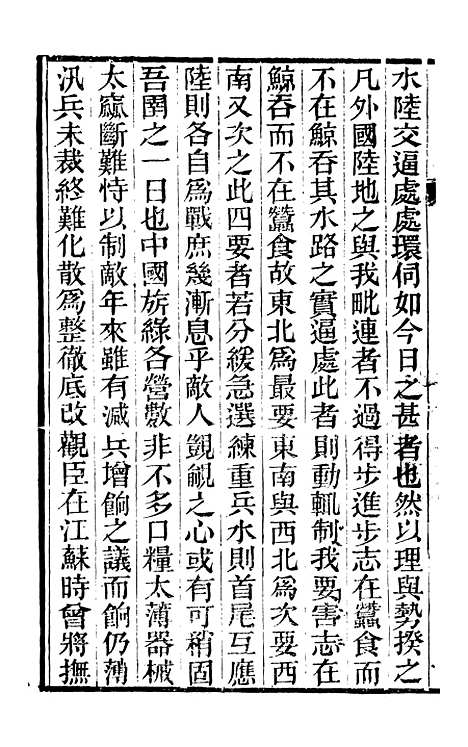 水陸交逼處處環伺如今日之甚者也然以理與勢揆之
凡外國陸地之與我毗連者不過得步進步志在蠶食而
不在鯨吞其水路之實逼處此者則動輒制我要害志在
鯨吞而不在蠶食故東北爲最要東南與西北爲次要西
南又次之此四要者若分緩急選練重兵水則首尾互應
陸則各自爲戰庶幾漸息乎敵人覬覦之心或有可稍固
吾圉之一日也中國旂綠各營數非不多口糧太薄器械
太窳斷難恃以制敵年來雖有减兵增餉之議而餉仍薄
汛兵未裁終難化散爲整徹底改觀臣在江蘇時曾將撫